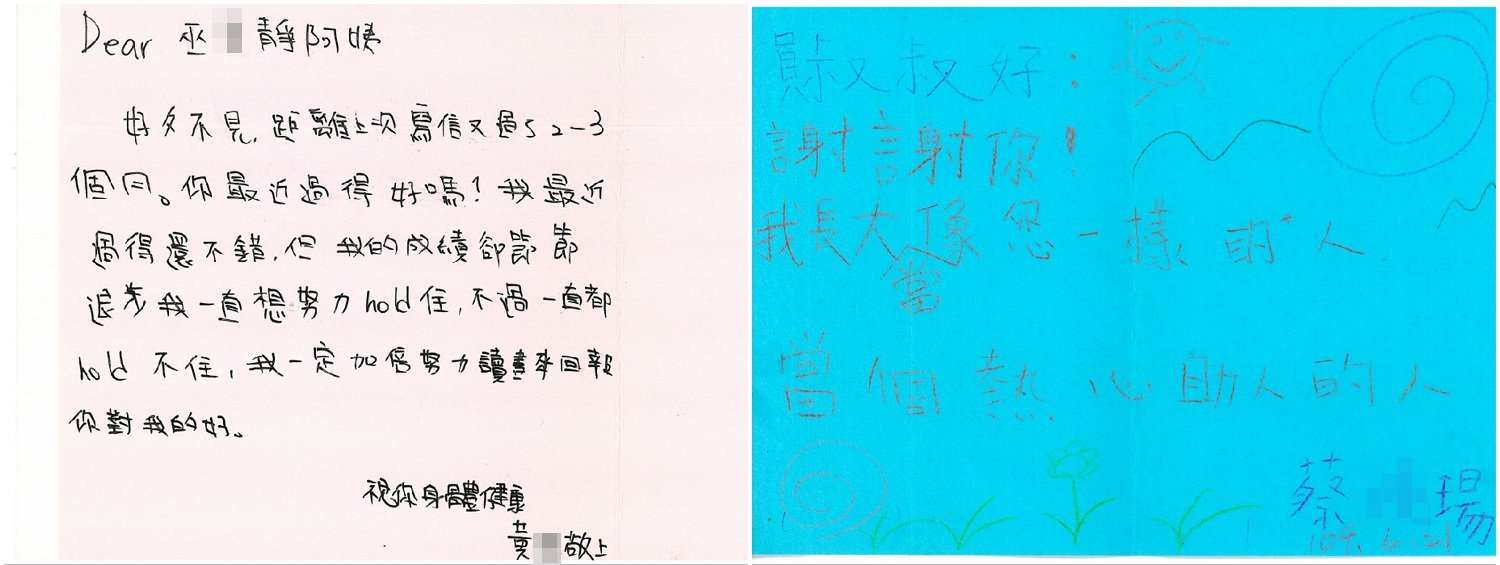 Dear 巫 靜阿姨
好久不見,距離上次寫信又過了2-3
個月。你最近過得好嗎?我最近
過得還不錯,但我的成績卻節節
退步我一直想努力hold住,不過一直都
hold 不住,我一定加倍努力讀書來回報
你對我的好。
祝你身體健康
黃 敬上
叔叔好:
謝謝你!
我長大像您一樣的人.
當
當個熱心助人的人
蔡 瑒
109.6.21